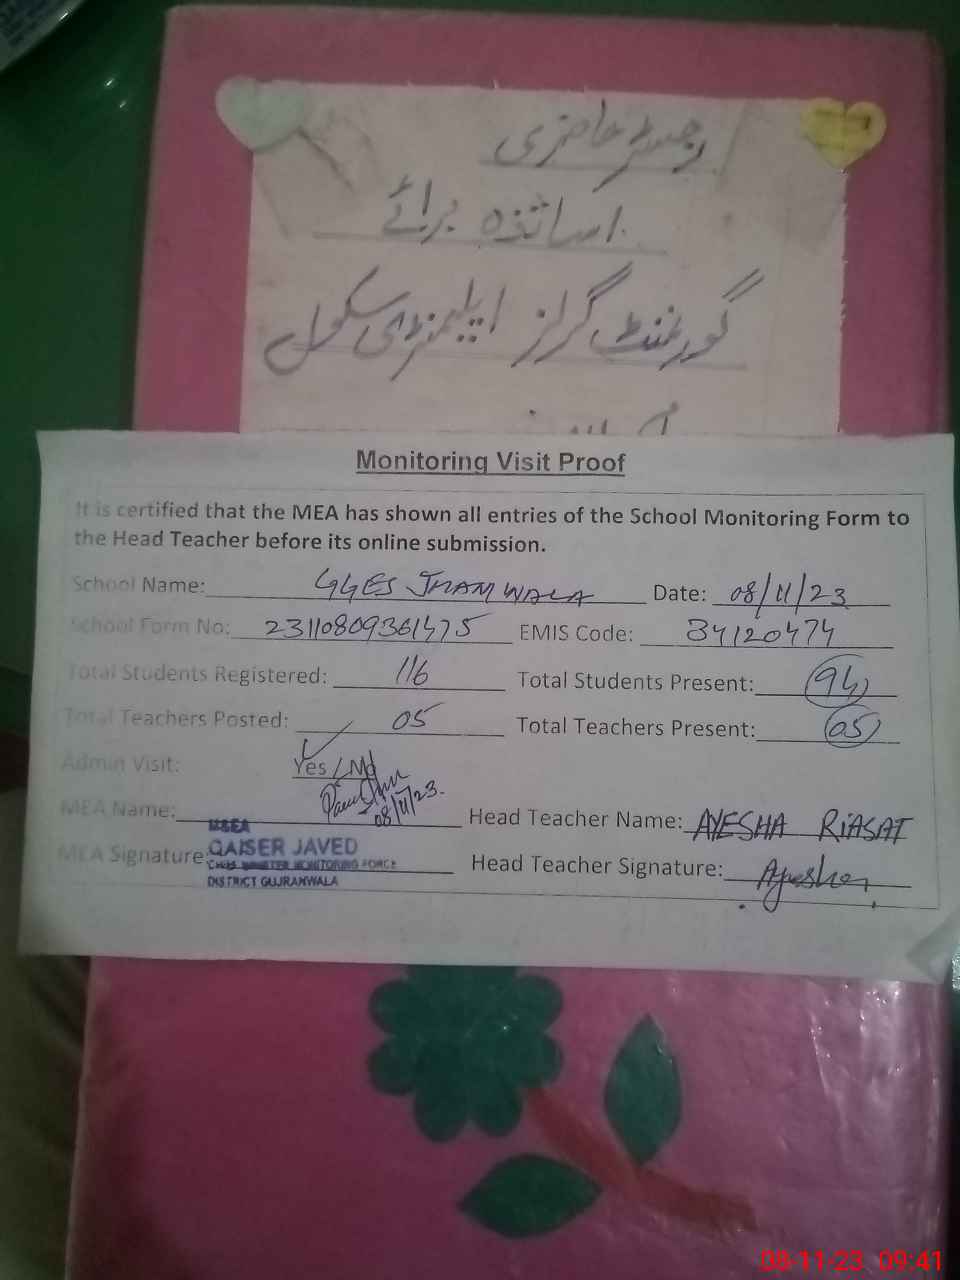 رجسٹر حاضری
اساتذہ برائے
گورنمنٹ گرلز ایلیمنٹری سکول
Monitoring Visit Proof
It is certified that the MEA has shown all entries of the School Monitoring Form to
the Head Teacher before its online submission.
School Name: GGES JHAMWALA Date: 08/11/23
School Form No: 23110809361475 EMIS Code: 34120474
Total Students Registered: 116 Total Students Present: 94
Total Teachers Posted: 05 Total Teachers Present: 05
Admin Visit: Yes / No
08/11/23.
MEA Name: Head Teacher Name: AYESHA RIASAT
M&EA
MEA Signature: QAISER JAVED Head Teacher Signature: Ayesha
CHIEF MINISTER MONITORING FORCE
DISTRICT GUJRANWALA
08-11-23 09:41